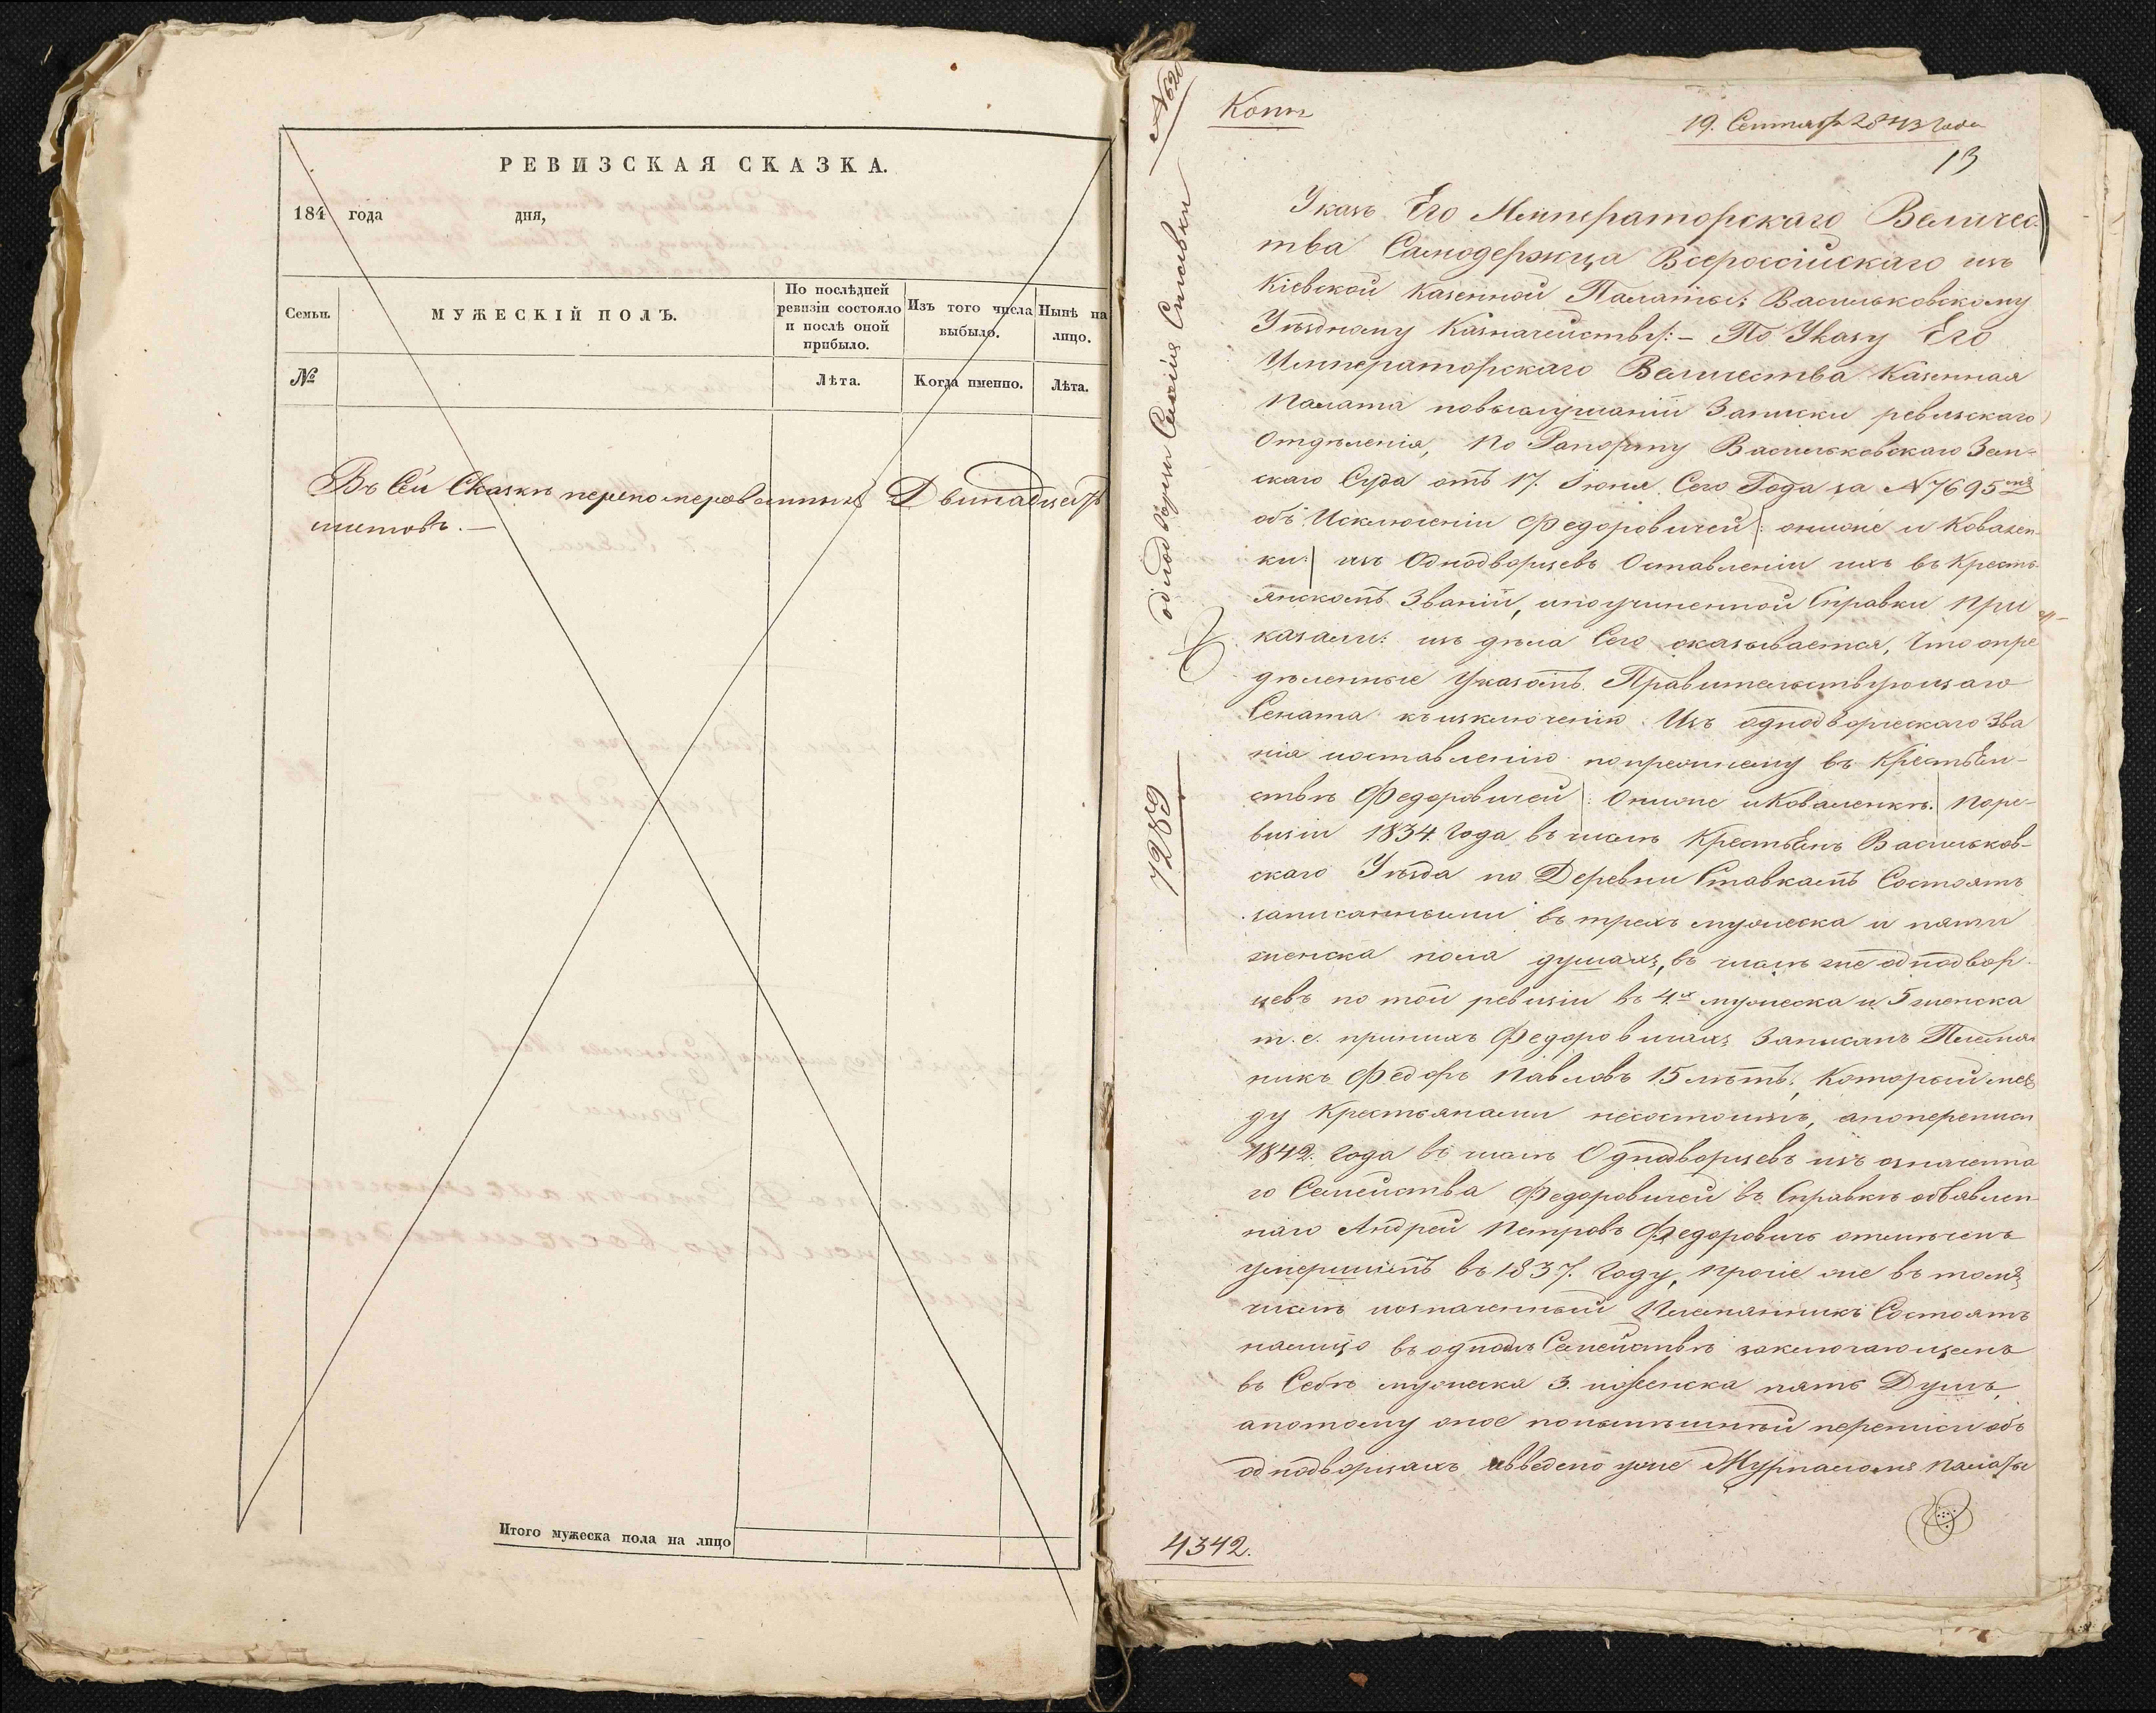 РЕВИЗСКАЯ СКАЗКА.
184 года дня,
Семьи.
МУЖЕСКІЙ ПОЛЪ.
По послѣдней ревизіи состояло и послѣ оной прибыло.
Изъ того числа выбыло.
Нынѣ на лицо.
№
Лѣта.
Когда именно.
Лѣта.
Въ Сей Сказкѣ перенумерованныхъ Двинадцать
листовъ. —
Итого мужеска пола на лицо
Копія
19. Сентября 1843 Года
13
Указъ Его Императорскаго Величес-
тва Самодержца Всероссійскаго изъ
Кіевской Казенной Палаты: Васильковскому
Уѣздному Казначейству: — По Указу Его
Императорскаго Величества Казенная
Палата повыслушаніи Записки ревизскаго
Отдѣленія, по Рапорту Васильковскаго Зем-
скаго Суда отъ 17. Іюня Сего Года за №7695мъ
объ Исключеніи Федоровичей /: онижè и Ковален-
ки :/ изъ Однодворцевъ Оставленіи ихъ въ Кресть-
янскомъ Званіи, ипоучиненной Справки При
казали: изъ дѣла Сего оказывается, Что опре
дѣленные Указомъ Правительствующаго
Сената къ изключенію Изъ однодворческаго Зва
нія иоставленію попрежнему въ Крестьян-
ствѣ Федоровичей /: Онижè иКоваленкѣ :/ поре-
визіи 1834 Года въ числѣ Крестьянъ Васильков-
скаго Уѣзда по Деревни Ставкамъ Состоятъ
записанными въ трехъ мужеска и пяти
женска пола душахъ, въ числѣ же однодвор-
цевъ по той ревизіи въ 4х мужеска и 5 женска
т. е. принихъ Федоровичахъ Записанъ Племя
никъ Федоръ Павловъ 15 лѣтъ, Который меж
ду Крестьянами несостоитъ, апопереписи
1842. Года въ числѣ Однодворцевъ изъ означенна
го Семейства Федоровичей въ Справкѣ объявлен-
наго Андрей Петровъ Федоровичъ отмѣченъ
умершимъ въ 1837. Году, прочіе же въ томъ
числѣ иозначенный Племянникъ Состоятъ
налицо въ одномъ Семействѣ заключающемъ
въ Себѣ мужеска 3. иженска пять Душъ,
апотому оное понынѣшней переписи объ
однодворцахъ ивведено уже Журналомъ Палаты
№ 620
однодворцы Сихія Списовки
7289
4342.